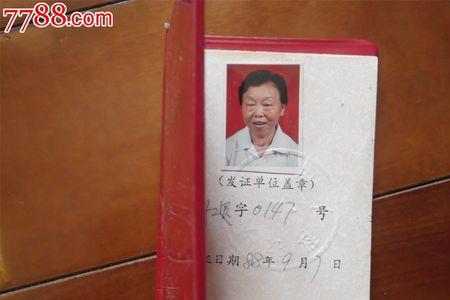 7788.com
(发证单位盖章)
退字0147号
日期88年9月7日